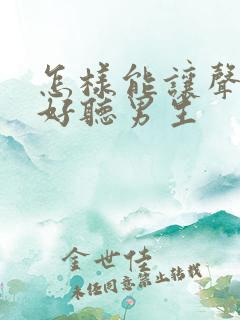 怎樣能讓聲
好聽男生
金世佳
未經同意禁止轉載